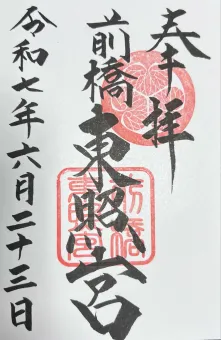 奉拝
前橋東照宮
令和七年六月二十三日
前橋
東照宮